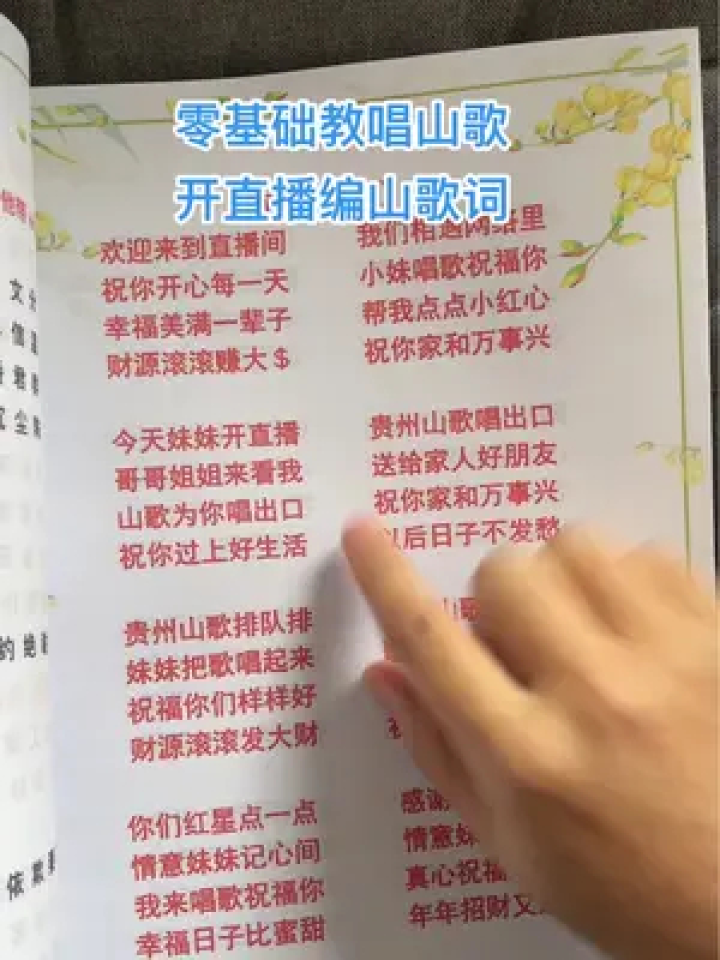 零基础教唱山歌
开直播编山歌词
欢迎来到直播间
祝你开心每一天
幸福美满一辈子
财源滚滚赚大$
我们相遇网络里
小妹唱歌祝福你
帮我点点小红心
祝你家和万事兴
今天妹妹开直播
哥哥姐姐来看我
山歌为你唱出口
祝你过上好生活
贵州山歌唱出口
送给家人好朋友
祝你家和万事兴
以后日子不发愁
贵州山歌排队排
妹妹把歌唱起来
祝福你们样样好
财源滚滚发大财
山歌
你们红星点一点
情意妹妹记心间
我来唱歌祝福你
幸福日子比蜜甜
感谢
情意妹
真心祝福
年年招财又